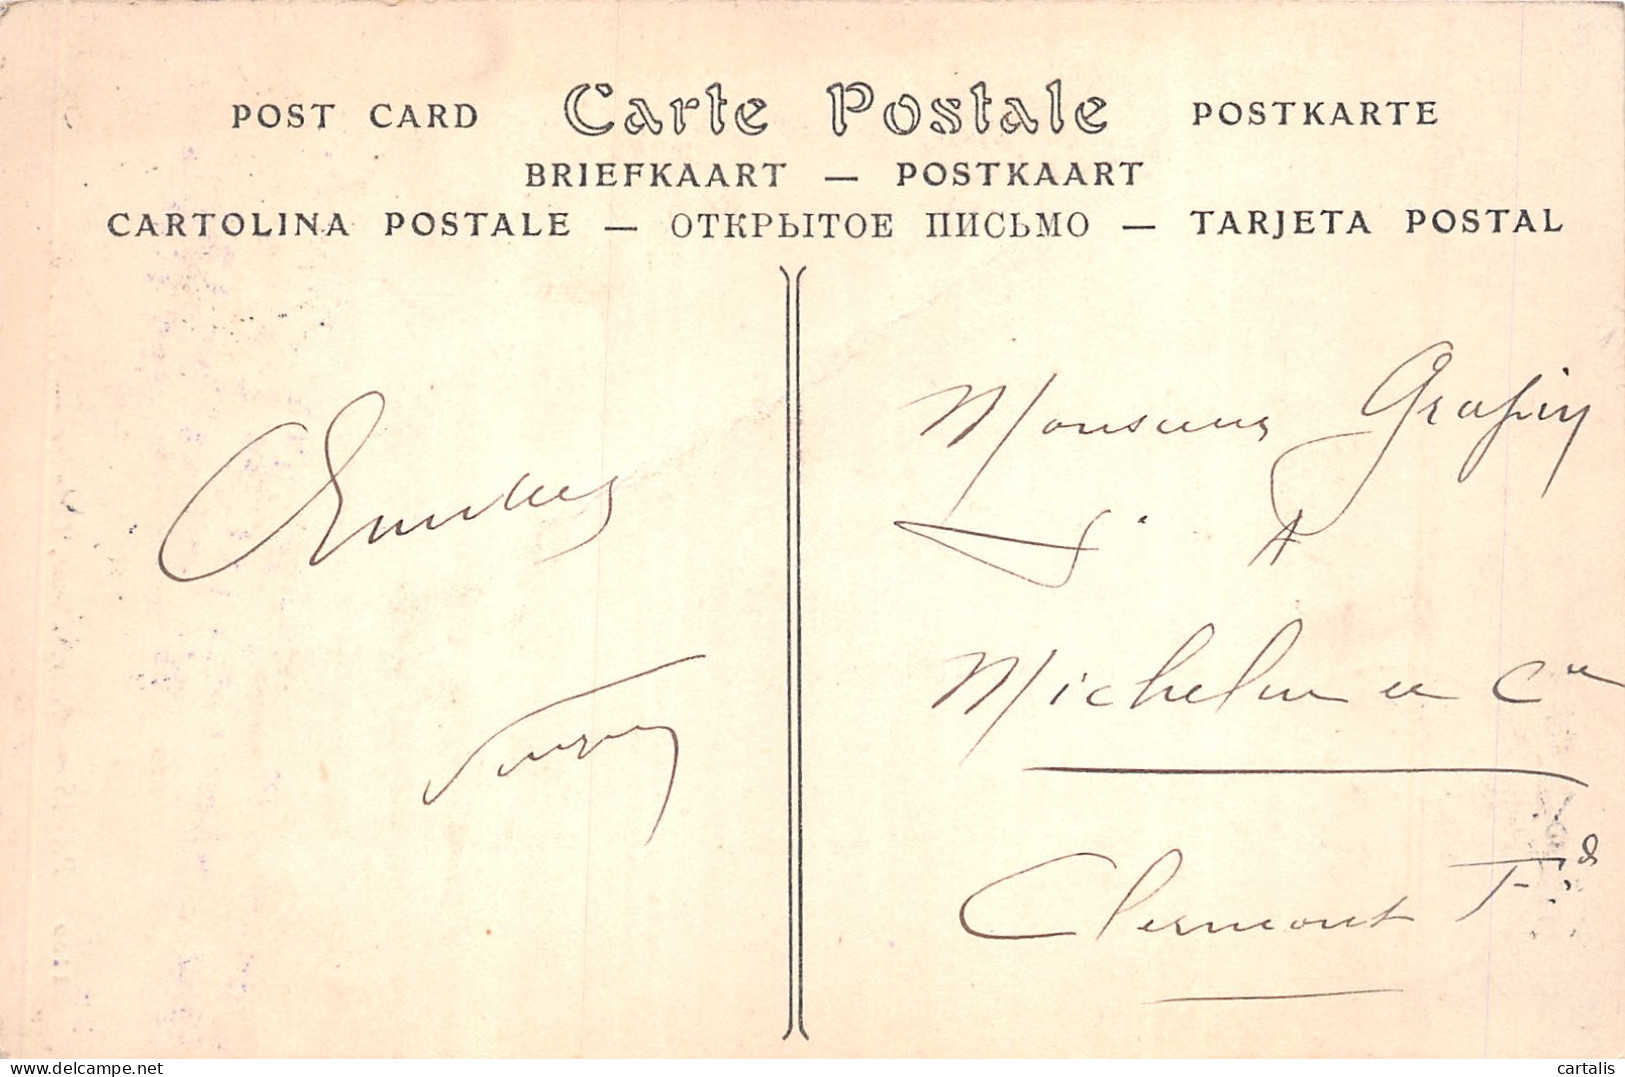 POST CARD Carte Postale POSTKARTE
BRIEFKAART — POSTKAART
CARTOLINA POSTALE — ОТКРЫТОЕ ПИСЬМО — TARJETA POSTAL
Monsieur
Michelin et Cie
Clermont Fd
delcampe.net
cartalis